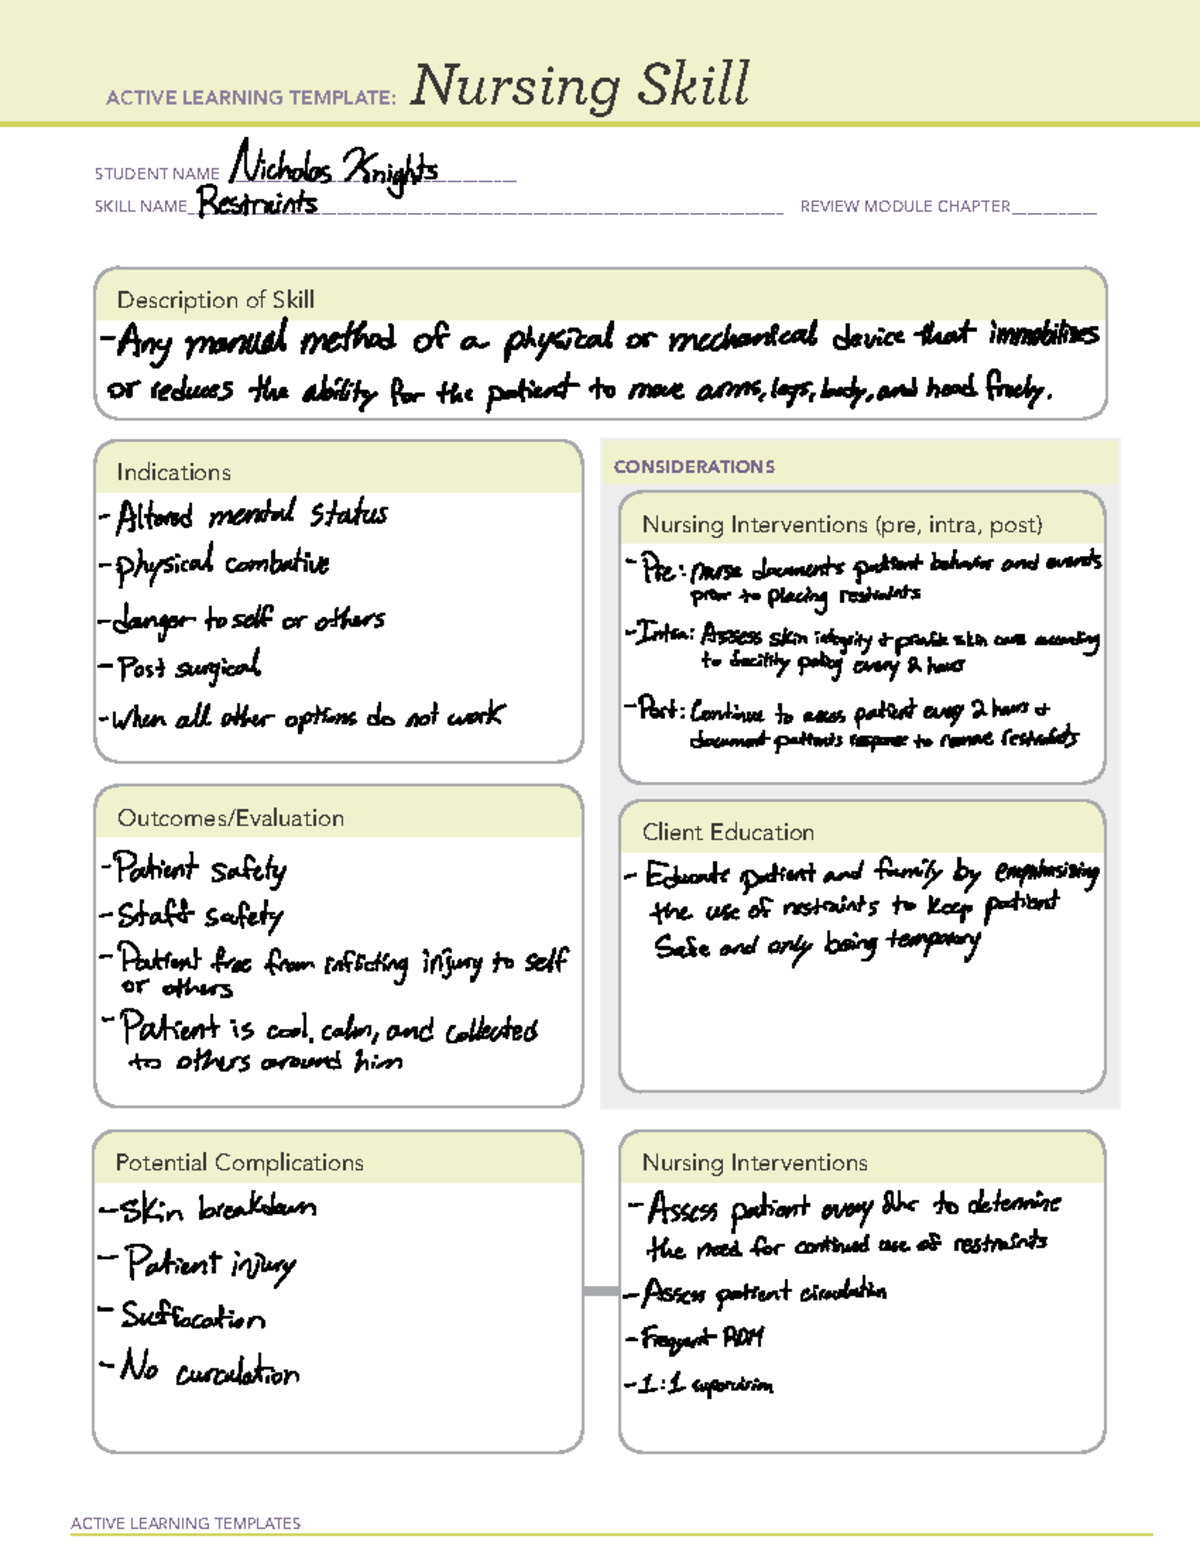 ACTIVE LEARNING TEMPLATE: Nursing Skill
STUDENT NAME Nicholas Knights
SKILL NAME Restraints REVIEW MODULE CHAPTER
Description of Skill
- Any manual method of a physical or mechanical device that immobilizes
or reduces the ability for the patient to move arms, legs, body, and head freely.
Indications
- Altered mental status
- physical combative
- danger to self or others
- Post surgical
- When all other options do not work
CONSIDERATIONS
Nursing Interventions (pre, intra, post)
- Pre: nurse documents patient behavior and events
prior to placing restraints
- Intra: Assess skin integrity + provide skin care according
to facility policy every 2 hours
- Post: Continue to assess patient every 2 hours +
document patients response to remove restraints
Outcomes/Evaluation
- Patient safety
- Staff safety
- Patient free from inflicting injury to self
or others
- Patient is cool, calm, and collected
to others around him
Client Education
- Educate patient and family by emphasizing
the use of restraints to keep patient
Safe and only being temporary
Potential Complications
- Skin breakdown
- Patient injury
- Suffocation
- No curculation
Nursing Interventions
- Assess patient every 2hr to determine
the need for continued use of restraints
- Assess patient circulation
- Frequent ROM
- 1:1 supervision
ACTIVE LEARNING TEMPLATES